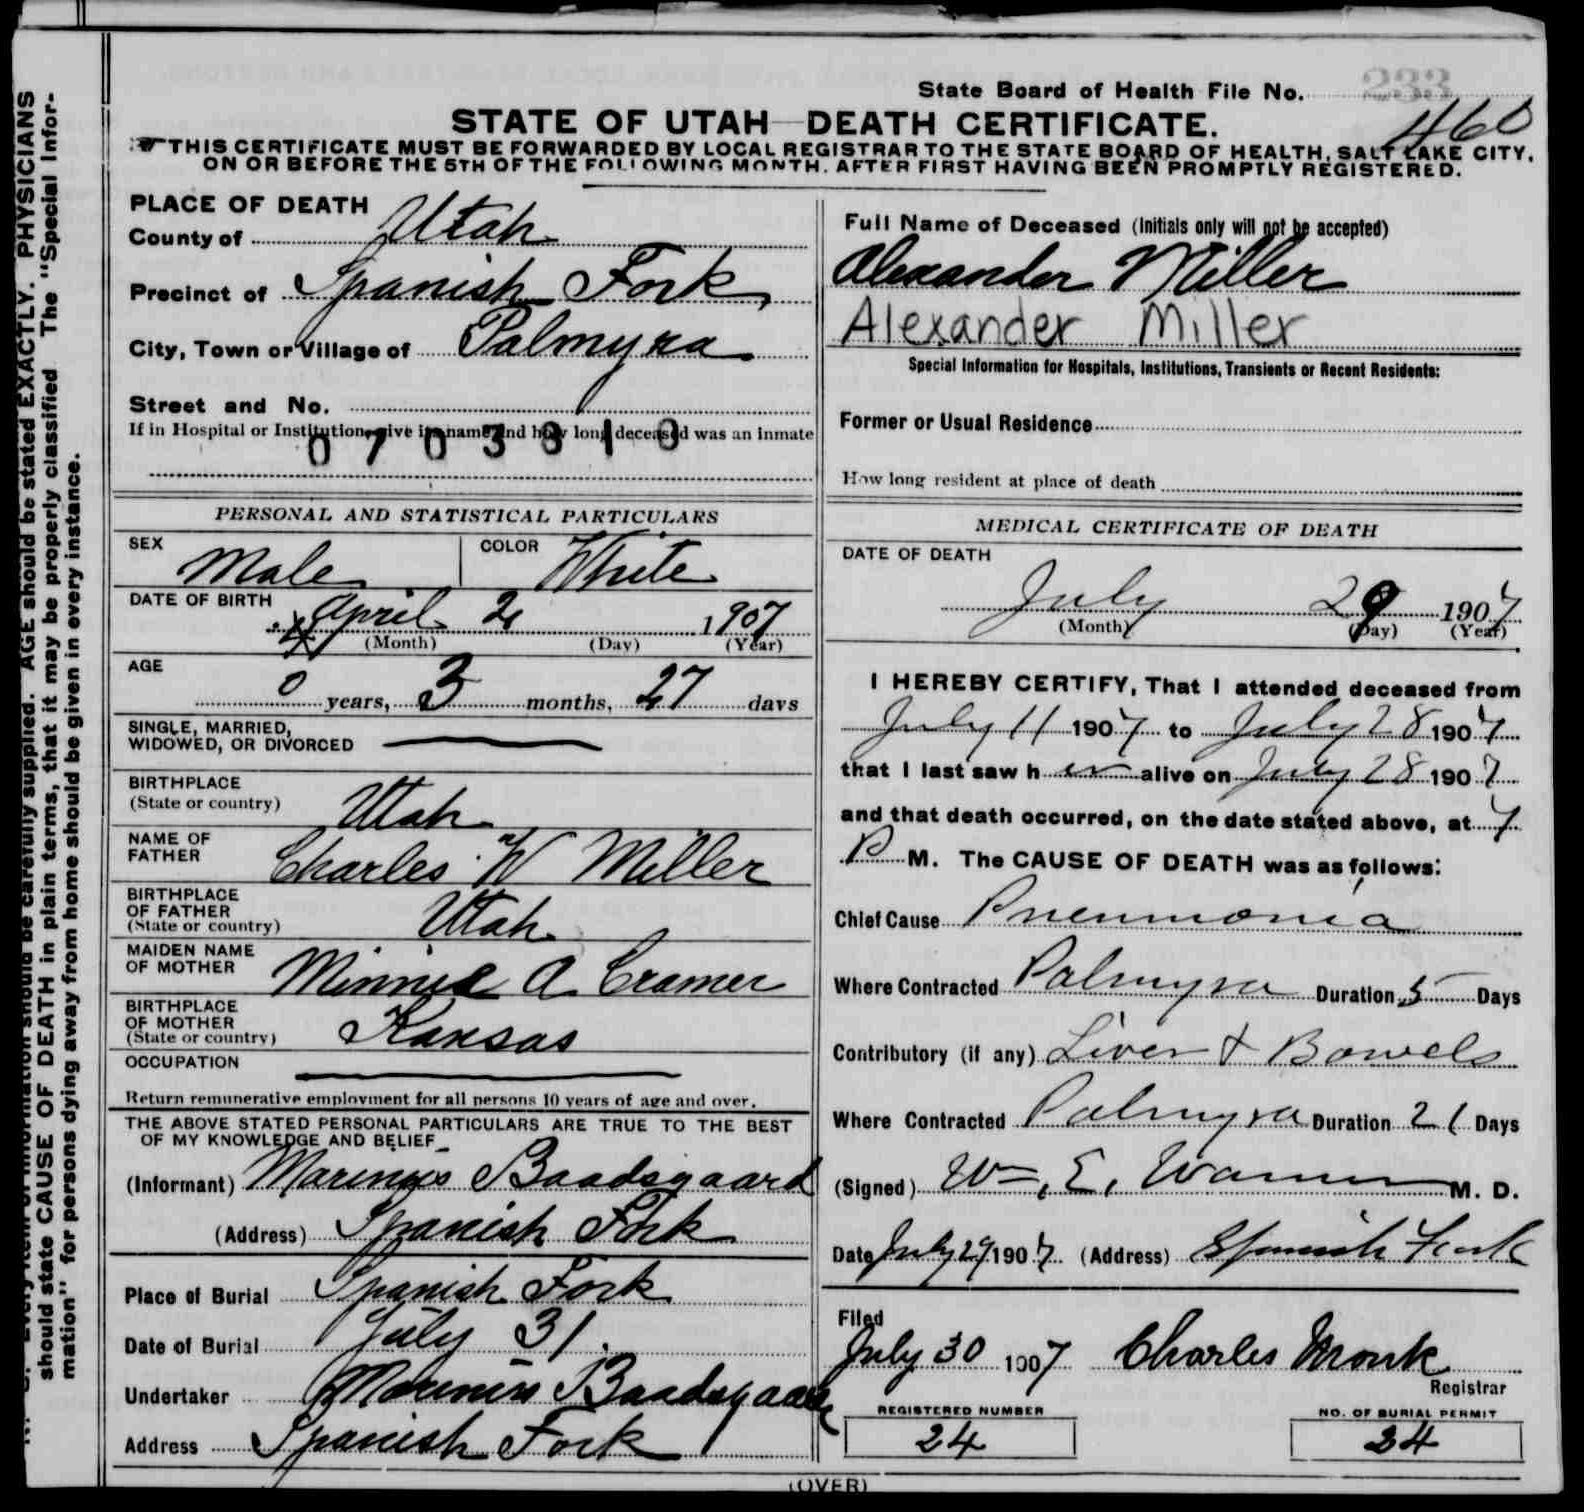 State Board of Health File No. 233
460
STATE OF UTAH—DEATH CERTIFICATE.
☛THIS CERTIFICATE MUST BE FORWARDED BY LOCAL REGISTRAR TO THE STATE BOARD OF HEALTH, SALT LAKE CITY,
ON OR BEFORE THE 5TH OF THE FOLLOWING MONTH, AFTER FIRST HAVING BEEN PROMPTLY REGISTERED.
PLACE OF DEATH
County of Utah
Precinct of Spanish Fork
City, Town or Village of Palmyra
Street and No.
If in Hospital or Institution, give its name and how long deceased was an inmate
PERSONAL AND STATISTICAL PARTICULARS
SEX Male COLOR White
DATE OF BIRTH April 2 1907
(Month) (Day) (Year)
AGE
0 years, 3 months, 27 days
SINGLE, MARRIED,
WIDOWED, OR DIVORCED
BIRTHPLACE
(State or country) Utah
NAME OF
FATHER Charles W Miller
BIRTHPLACE
OF FATHER
(State or country) Utah
MAIDEN NAME
OF MOTHER Minnie A Cramer
BIRTHPLACE
OF MOTHER
(State or country) Kansas
OCCUPATION
Return remunerative employment for all persons 10 years of age and over.
THE ABOVE STATED PERSONAL PARTICULARS ARE TRUE TO THE BEST
OF MY KNOWLEDGE AND BELIEF
(Informant) Marinus Baadsgaard
(Address) Spanish Fork
Place of Burial Spanish Fork
Date of Burial July 31.
Undertaker Marinus Baadsgaard
Address Spanish Fork
Full Name of Deceased (Initials only will not be accepted)
Alexander Miller
Alexander Miller
Special Information for Hospitals, Institutions, Transients or Recent Residents:
Former or Usual Residence
How long resident at place of death
MEDICAL CERTIFICATE OF DEATH
DATE OF DEATH
July 29 1907
(Month) (Day) (Year)
I HEREBY CERTIFY, That I attended deceased from
July 11 1907 to July 28 1907
that I last saw h im alive on July 28 1907
and that death occurred, on the date stated above, at 7
P M. The CAUSE OF DEATH was as follows:
Chief Cause Pneumonia
Where Contracted Palmyra Duration 5 Days
Contributory (if any) Liver & Bowels
Where Contracted Palmyra Duration 21 Days
(Signed) Wm. E. Warner M. D.
Date July 29 1907 (Address) Spanish Fork
Filed
July 30 1907 Charles Monk
Registrar
REGISTERED NUMBER
24
NO. OF BURIAL PERMIT
24
(OVER)
should state CAUSE OF DEATH in plain terms, that it may be properly classified The "Special Infor-
mation" for persons dying away from home should be given in every instance.